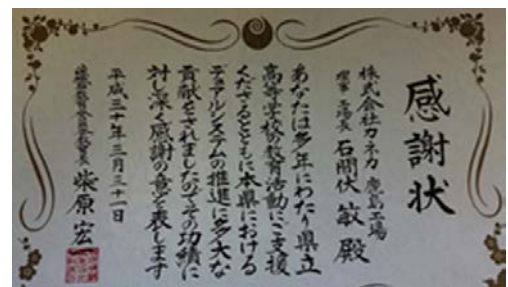 感謝状
株式会社カネカ 鹿島工場
理事 工場長 石間伏 敏 殿
あなたは多年にわたり県立
高等学校の教育活動にご支援
くださるとともに本県における
デュアルシステムの推進に多大な
貢献をされましたのでその功績に
対し深く感謝の意を表します
平成三十年三月三十一日
茨城県教育委員会教育長 柴原 宏